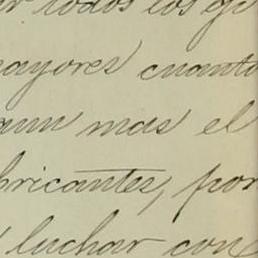 r todos los ef
mayores cuanto
aun mas el
bricantes, por
luchar con